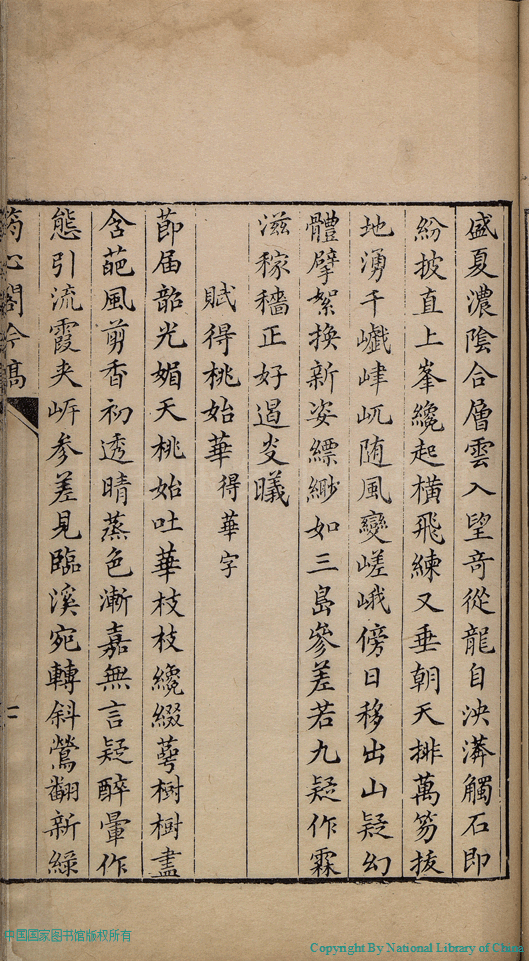 盛夏濃陰合層雲入望竒從龍自泱漭觸石即
紛披直上峯纔起横飛練又垂朝天排萬笏拔
地湧千巘崒屼随風變嵯峨傍日移出山疑幻
體擘絮換新姿縹緲如三島參差若九疑作霖
滋稼穡正好遏炎曦
賦得桃始華得華字
節届韶光媚夭桃始吐華枝枝纔綴萼樹樹盡
含葩風剪香初透晴蒸色漸嘉無言疑醉暈作
態引流霞夾㟁參差見臨溪宛轉斜鶯翻新綠
筠心閣吟稿
十一
中国国家图书馆版权所有
Copyright By National Library of China